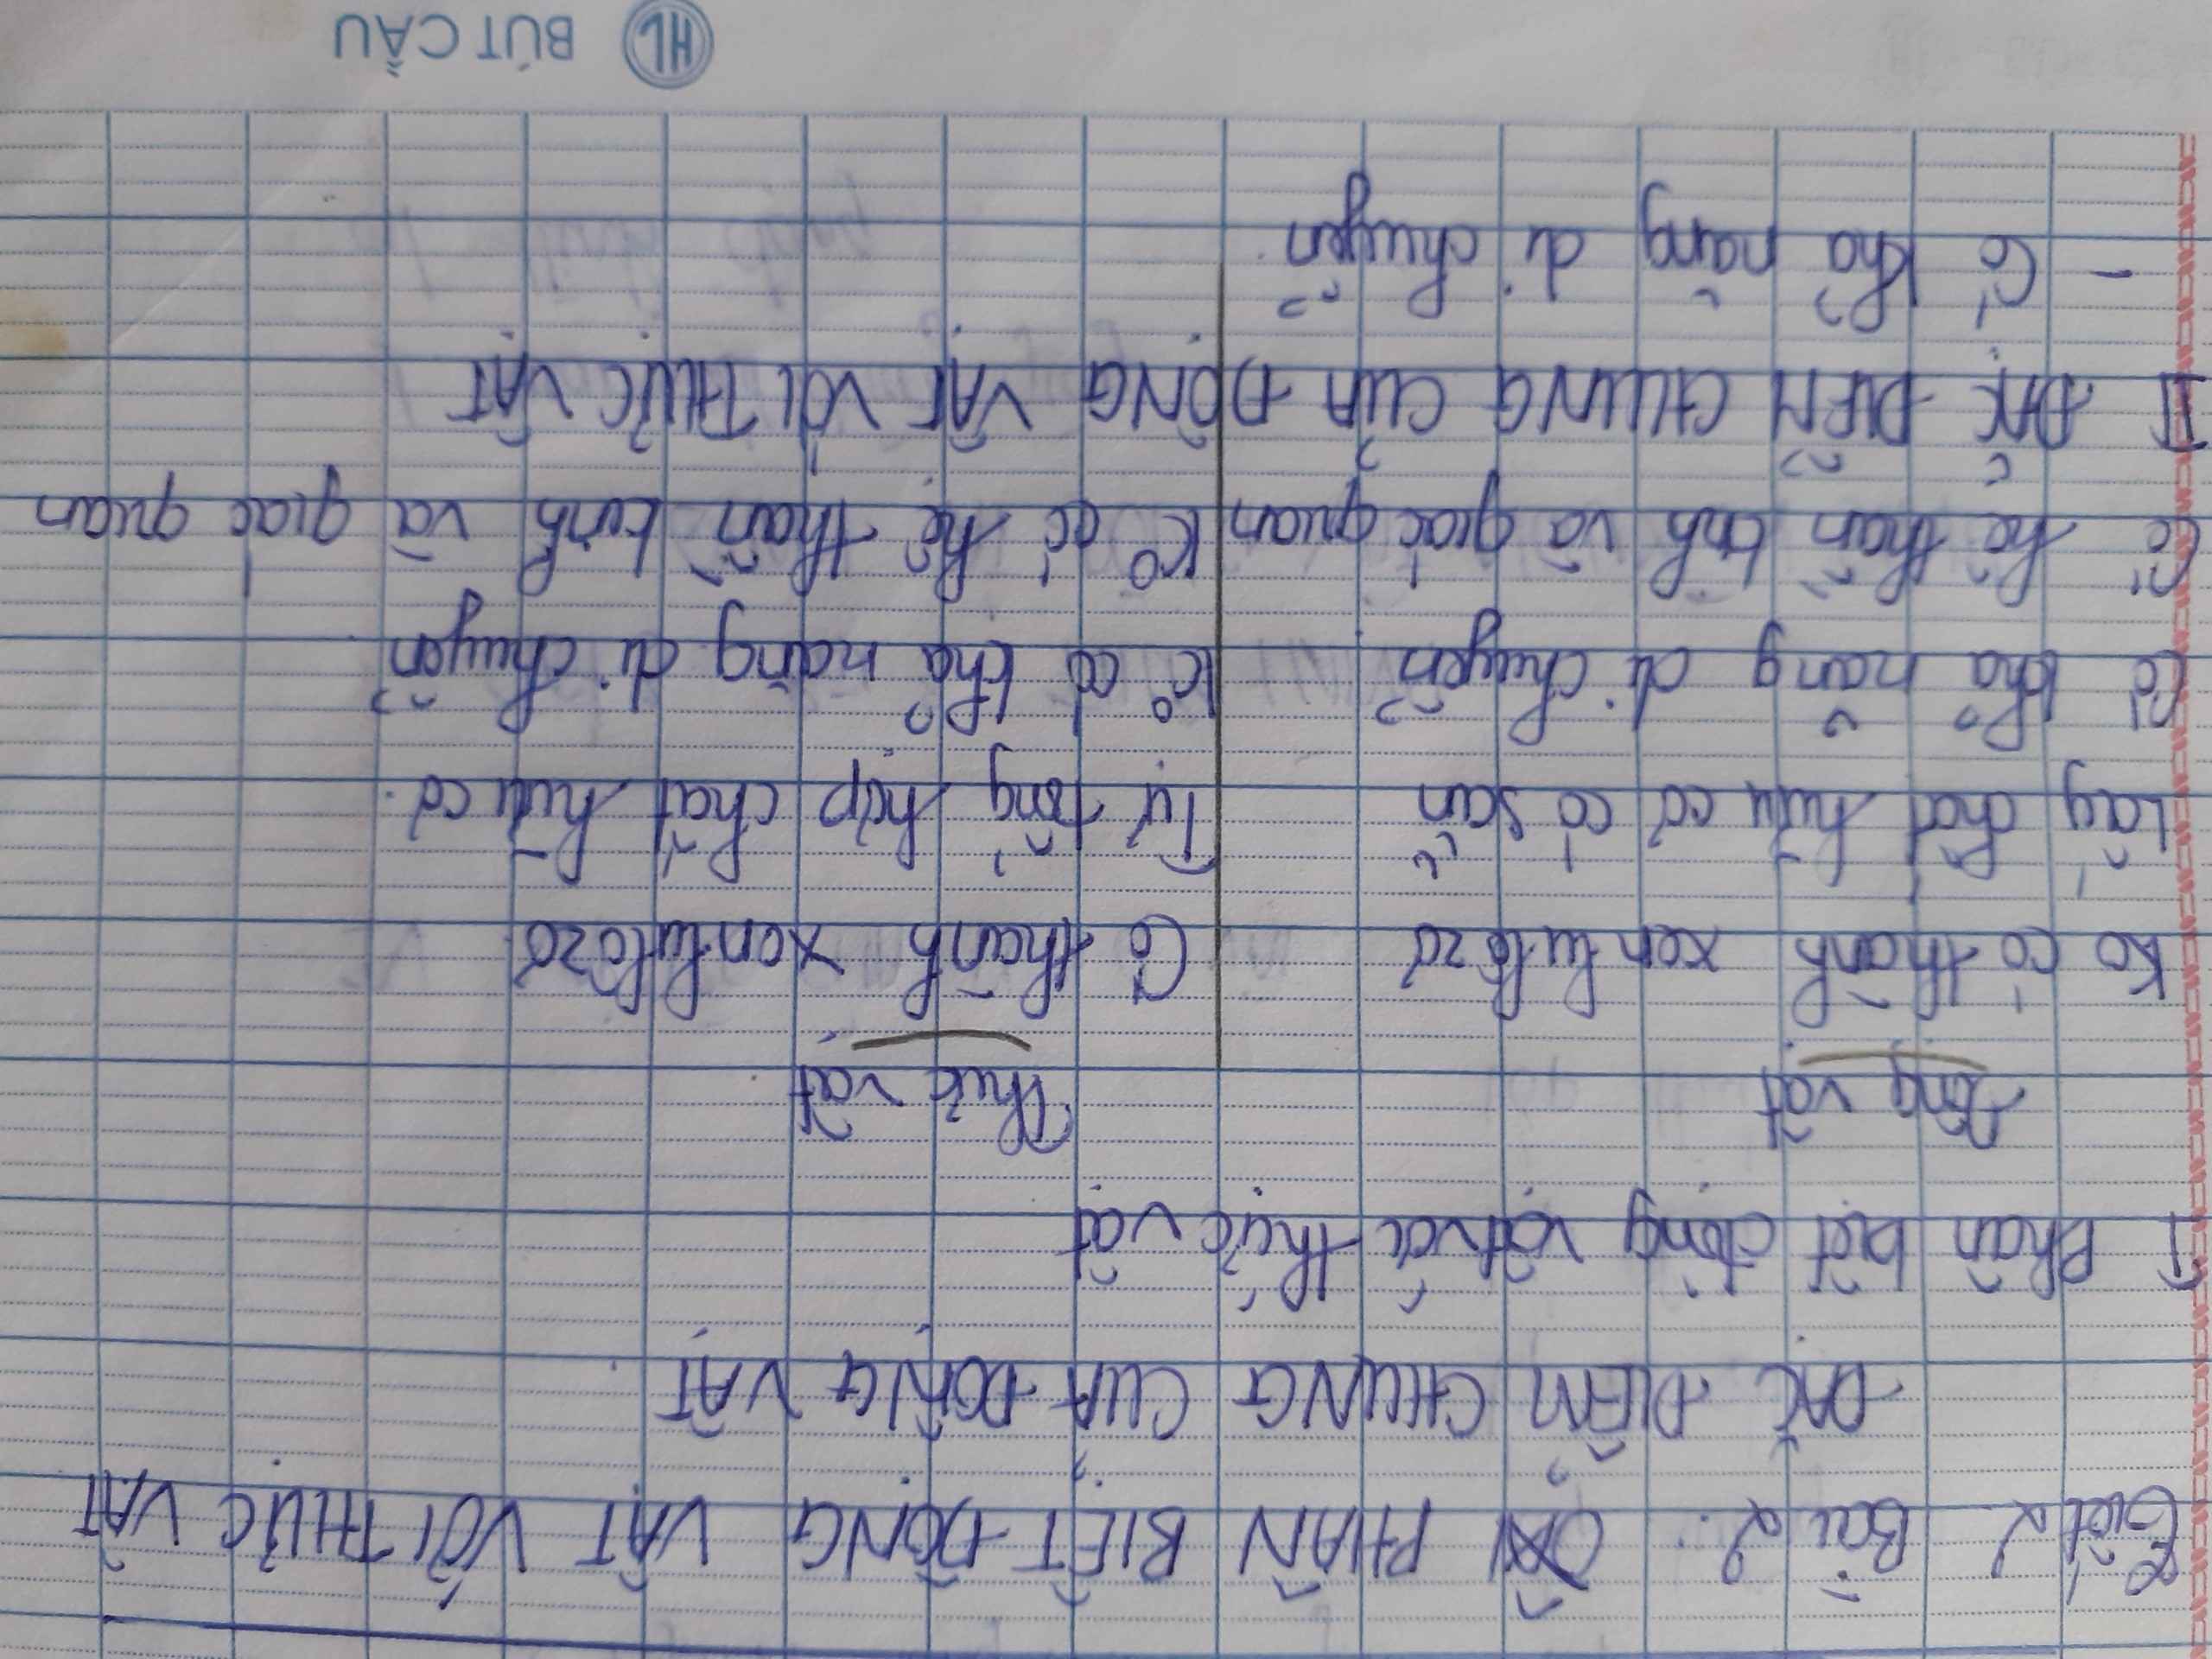 Tiết 2 Bài 2: PHÂN BIỆT ĐỘNG VẬT VỚI THỰC VẬT
ĐẶC ĐIỂM CHUNG CỦA ĐỘNG VẬT.
I Phân biệt động vật với thực vật
Động vật Thực vật
Ko có thành xenlulôzơ Có thành xenlulôzơ
Lấy chất hữu cơ có sẵn Tự tổng hợp chất hữu cơ.
Có khả năng di chuyển Ko có khả năng di chuyển
Có hệ thần kinh và giác quan Ko có hệ thần kinh và giác quan
II ĐẶC ĐIỂM CHUNG CỦA ĐỘNG VẬT VỚI THỰC VẬT
- Có khả năng di chuyển.
HL BÚT CẦU